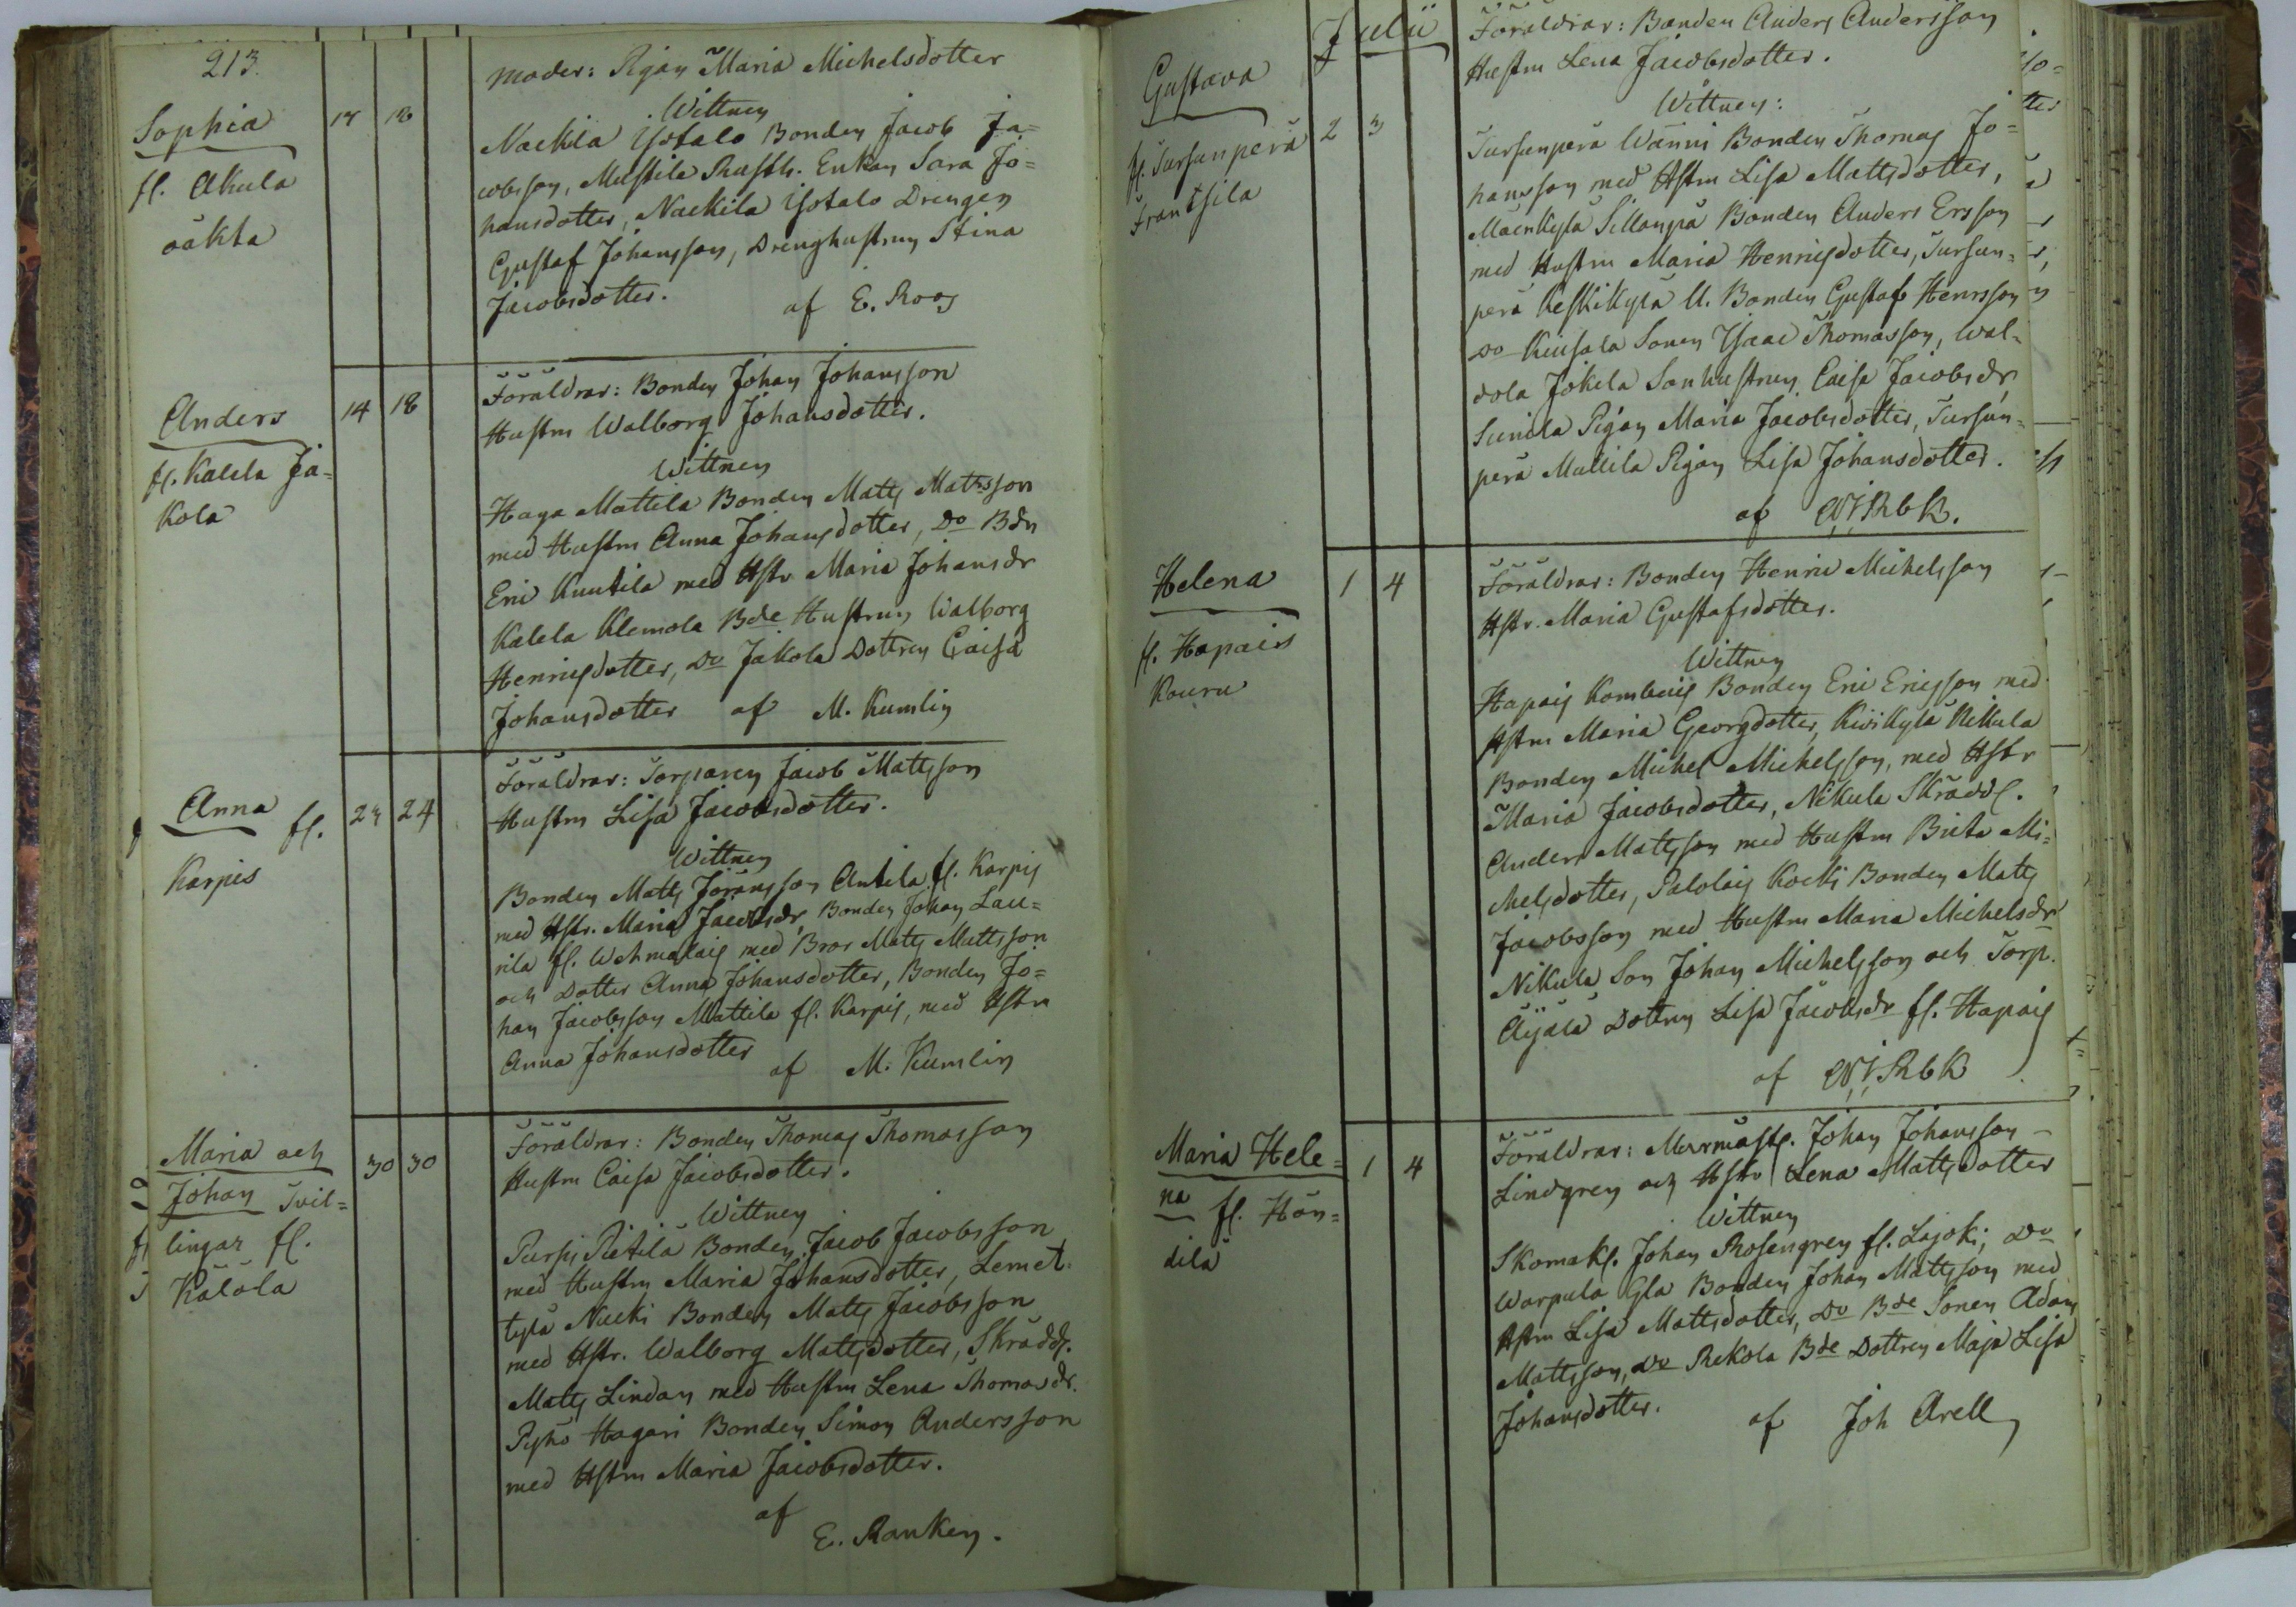 213.
Sophia
fl. Akula
oäkta
17 18
Moder: Pigan Maria Michelsdotter
Wittnen
Nackila Yfotalo Bonden Jacob Ja=
cobsson, Mustila Rusth. Enkan Sara Jo=
hansdotter, Nackila Yfotalo Drengen
Gustaf Johansson, Drenghustrun Stina
Jacobsdotter. af E. Roos
Anders
fl. Kalela Ja=
kola
14 18
Föräldrar: Bonden Johan Johansson
Hustrn Walborg Johansdotter.
Wittnen
Haga Mattila Bonden Matts Mattsson
med Hustrn Anna Johansdotter, Do Bdn
Eric Knutila med Hstr Maria Johansdr
Kalela Klemola Bde Hustrun Walborg
Henricsdotter, Do Jakola Dottren Caisa
Johansdotter af M. Kumlin
Anna fl.
Karpis
23 24
Föräldrar: Torparen Jacob Mattsson
Hustrn Lisa Jacobsdotter.
Wittnen
Bonden Matts Göransson Antila fl. Karpis
med Hstr. Maria Jacobsdr, Bonden Johan Lau=
rila fl. Wehmalais med Bror Matts Mattsson
och Dotter Anna Johansdotter, Bonden Jo=
han Jacobsson Mattila fl. Karpis, med Hstrn
Anna Johansdotter af M. Kumlin
Maria och
Johan Tvil=
lingar fl.
Kälölä
30 30
Föräldrar: Bonden Thomas Thomasson
Hustrn Caisa Jacobsdotter.
Wittnen
Pursi Pietilä Bonden Jacob Jacobsson
med Hustrn Maria Johansdotter, Lemet=
tylä Nucki Bonden Matts Jacobsson
med Hstr. Walborg Mattsdotter, Skrädd.
Matts Lindan med Hustrn Lena Thomasdr.
Pyhö Hagari Bonden Simon Andersson
med Hstrn Maria Jacobsdotter.
af
E. Ranken.
Julii
Gustava
fl. Tursunperä
Frantsila
2 3
Föräldrar: Bonden Anders Andersson
Hustrn Lena Jacobsdotter.
Wittnen:
Tursunperä Wänni Bonden Thomas Jo=
hansson med Hstrn Lisa Mattsdotter,
Mäenkylä Sillanpä Bonden Anders Ersson
med Hustrn Maria Henricsdotter, Tursun=
perä Keskikylä U. Bonden Gustaf Henrsson
Do Kiusala Sonen Isaac Thomasson, Wal=
dola Jokela Sonhustrun Caisa Jacobsdr
Sunila Pigan Maria Jacobsdotter, Tursun=
perä Mullila Pigan Lisa Johansdotter.
af WiRbk.
Helena
fl. Hapais
Kouru
1 4
Föräldrar: Bonden Henric Michelsson
Hstr. Maria Gustafsdotter.
Wittnen
Hapais Kombais Bonden Eric Ericsson med
Hstrn Maria Georgdotter, Kivikylä Nikula
Bonden Michel Michelsson, med Hstr
Maria Jacobsdotter, Nikula Skrädd.
Anders Mattsson med Hustrn Brita Mi=
chelsdotter, Palolais Kocki Bonden Matts
Jacobsson med Hustrn Maria Michelsdr
Nikula Son Johan Michelsson och Torp.
Äijälä Dottren Lisa Jacobsdr fl. Hapais
af WiRbk
Maria Hele=
na fl. Hön=
dilä
1 4
Föräldrar: Murmäst. Johan Johansson
Lindgren och Hstr Lena Mattsdotter
Wittnen
Skomak. Johan Rosengren fl. Lajoki, Do
Warpula Gla Bonden Johan Mattsson med
Hstrn Lisa Mattsdotter, Do Bde Sonen Adam
Mattsson, Do Rekola Bde Dottren Maja Lisa
Johansdotter. af Joh Arell